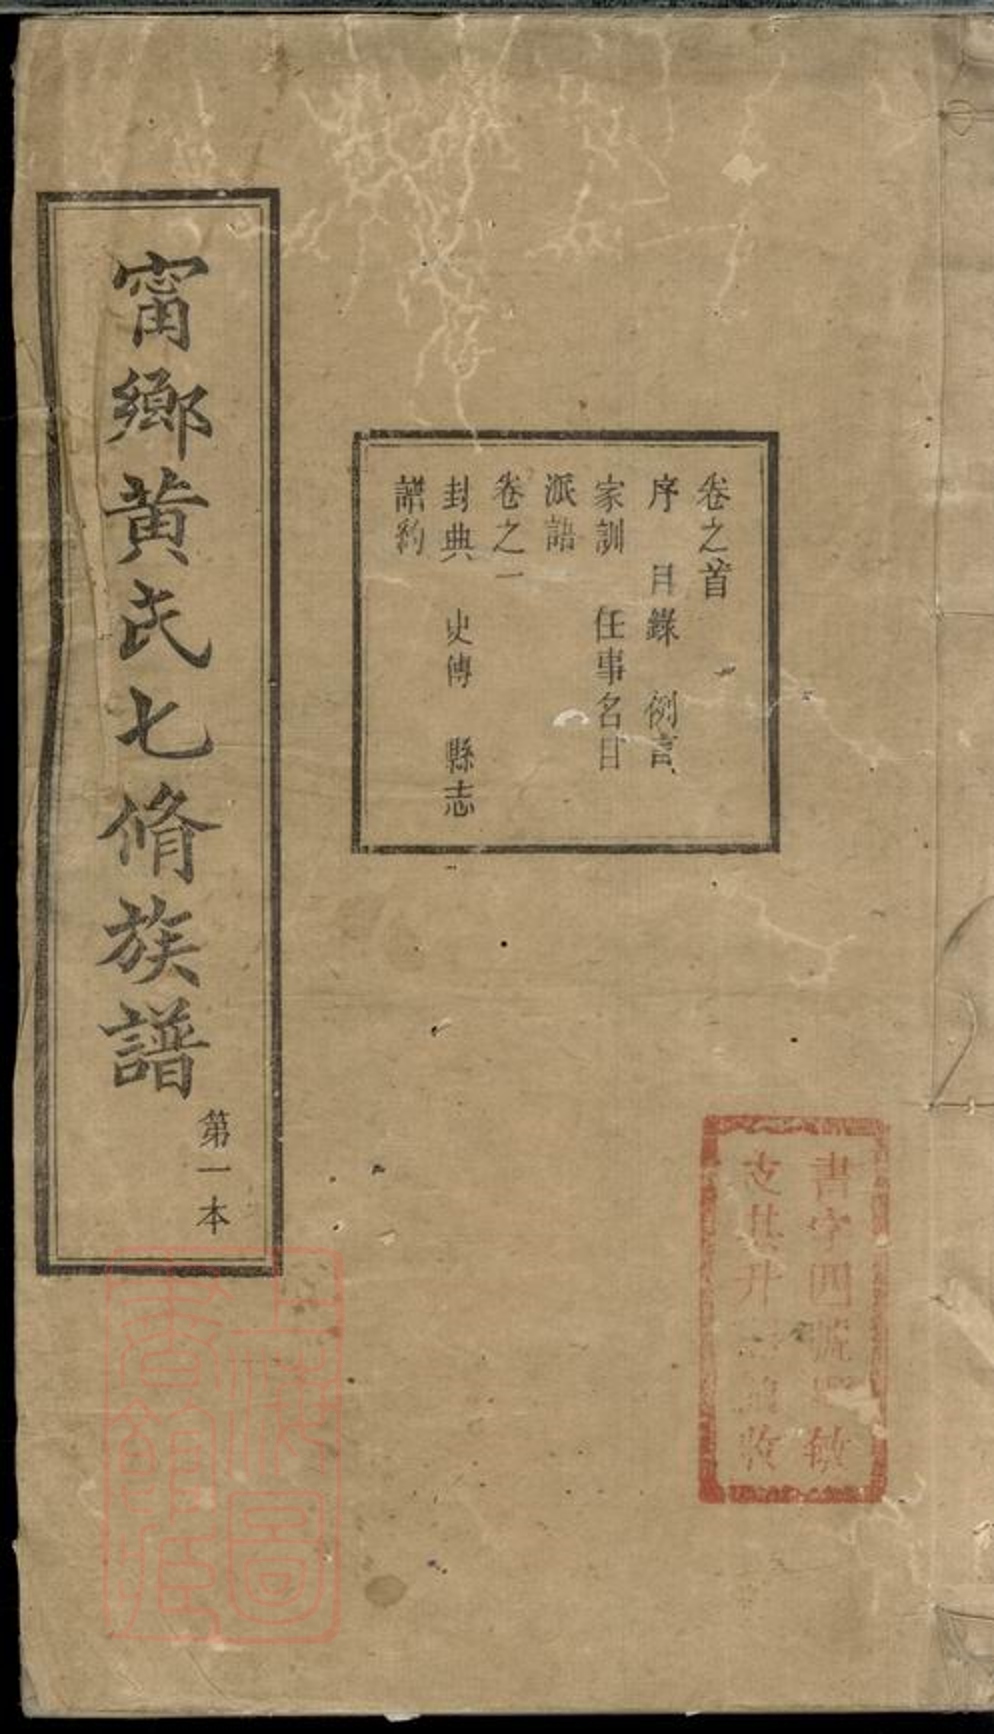 甯鄉黄氏七脩族譜
第一本
卷之首
序 目錄 例言
家訓 任事名目
派語
卷之一
封典 史傳 縣志
譜約
書字四號
上海圖書館藏